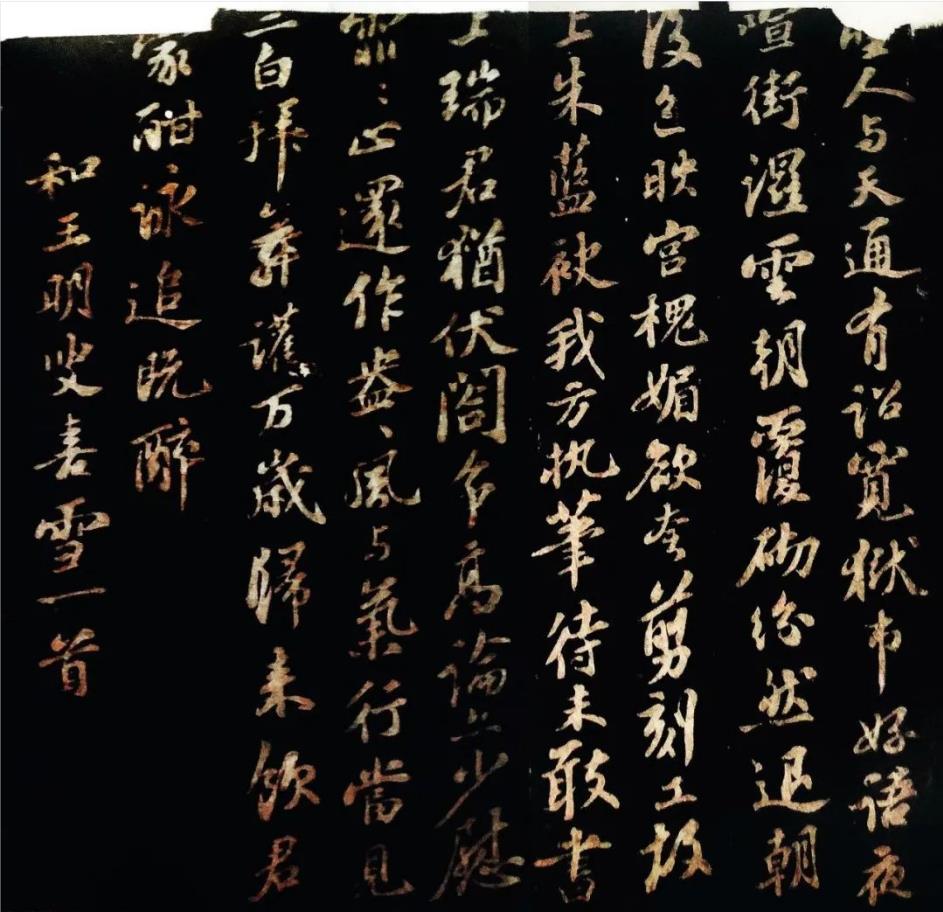 聖人与天通有詔寬獄市好語夜
喧街濕雲朝覆砌紛然退朝
後色映宮槐媚欲夸剪刻工故
上朱藍袂我方执筆待未敢書
上瑞君猶伏閤爭高論亦少慰
霏〻止還作盎〻風与氣行當見
三白拜舞讙万歲歸来飲君
家酣詠追既醉
和王明叟喜雪一首